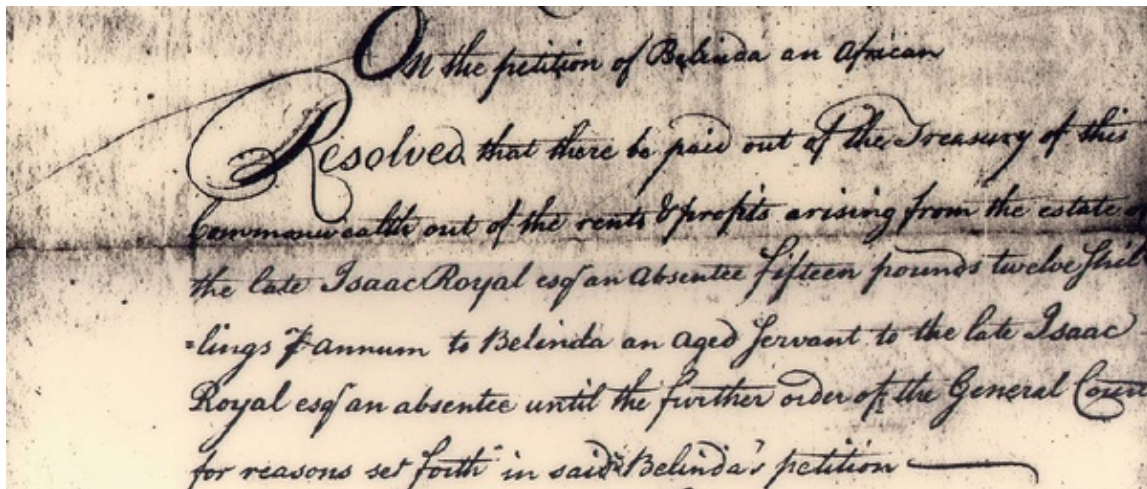 On the petition of Belinda an African
Resolved that there be paid out of the Treasury of this
Commonwealth out of the rents & profits arising from the estate of
the late Isaac Royal esqr an absentee fifteen pounds twelve shil
=lings pr annum to Belinda an aged servant to the late Isaac
Royal esqr an absentee until the further order of the General Cour
for reasons set forth in said Belinda's petition